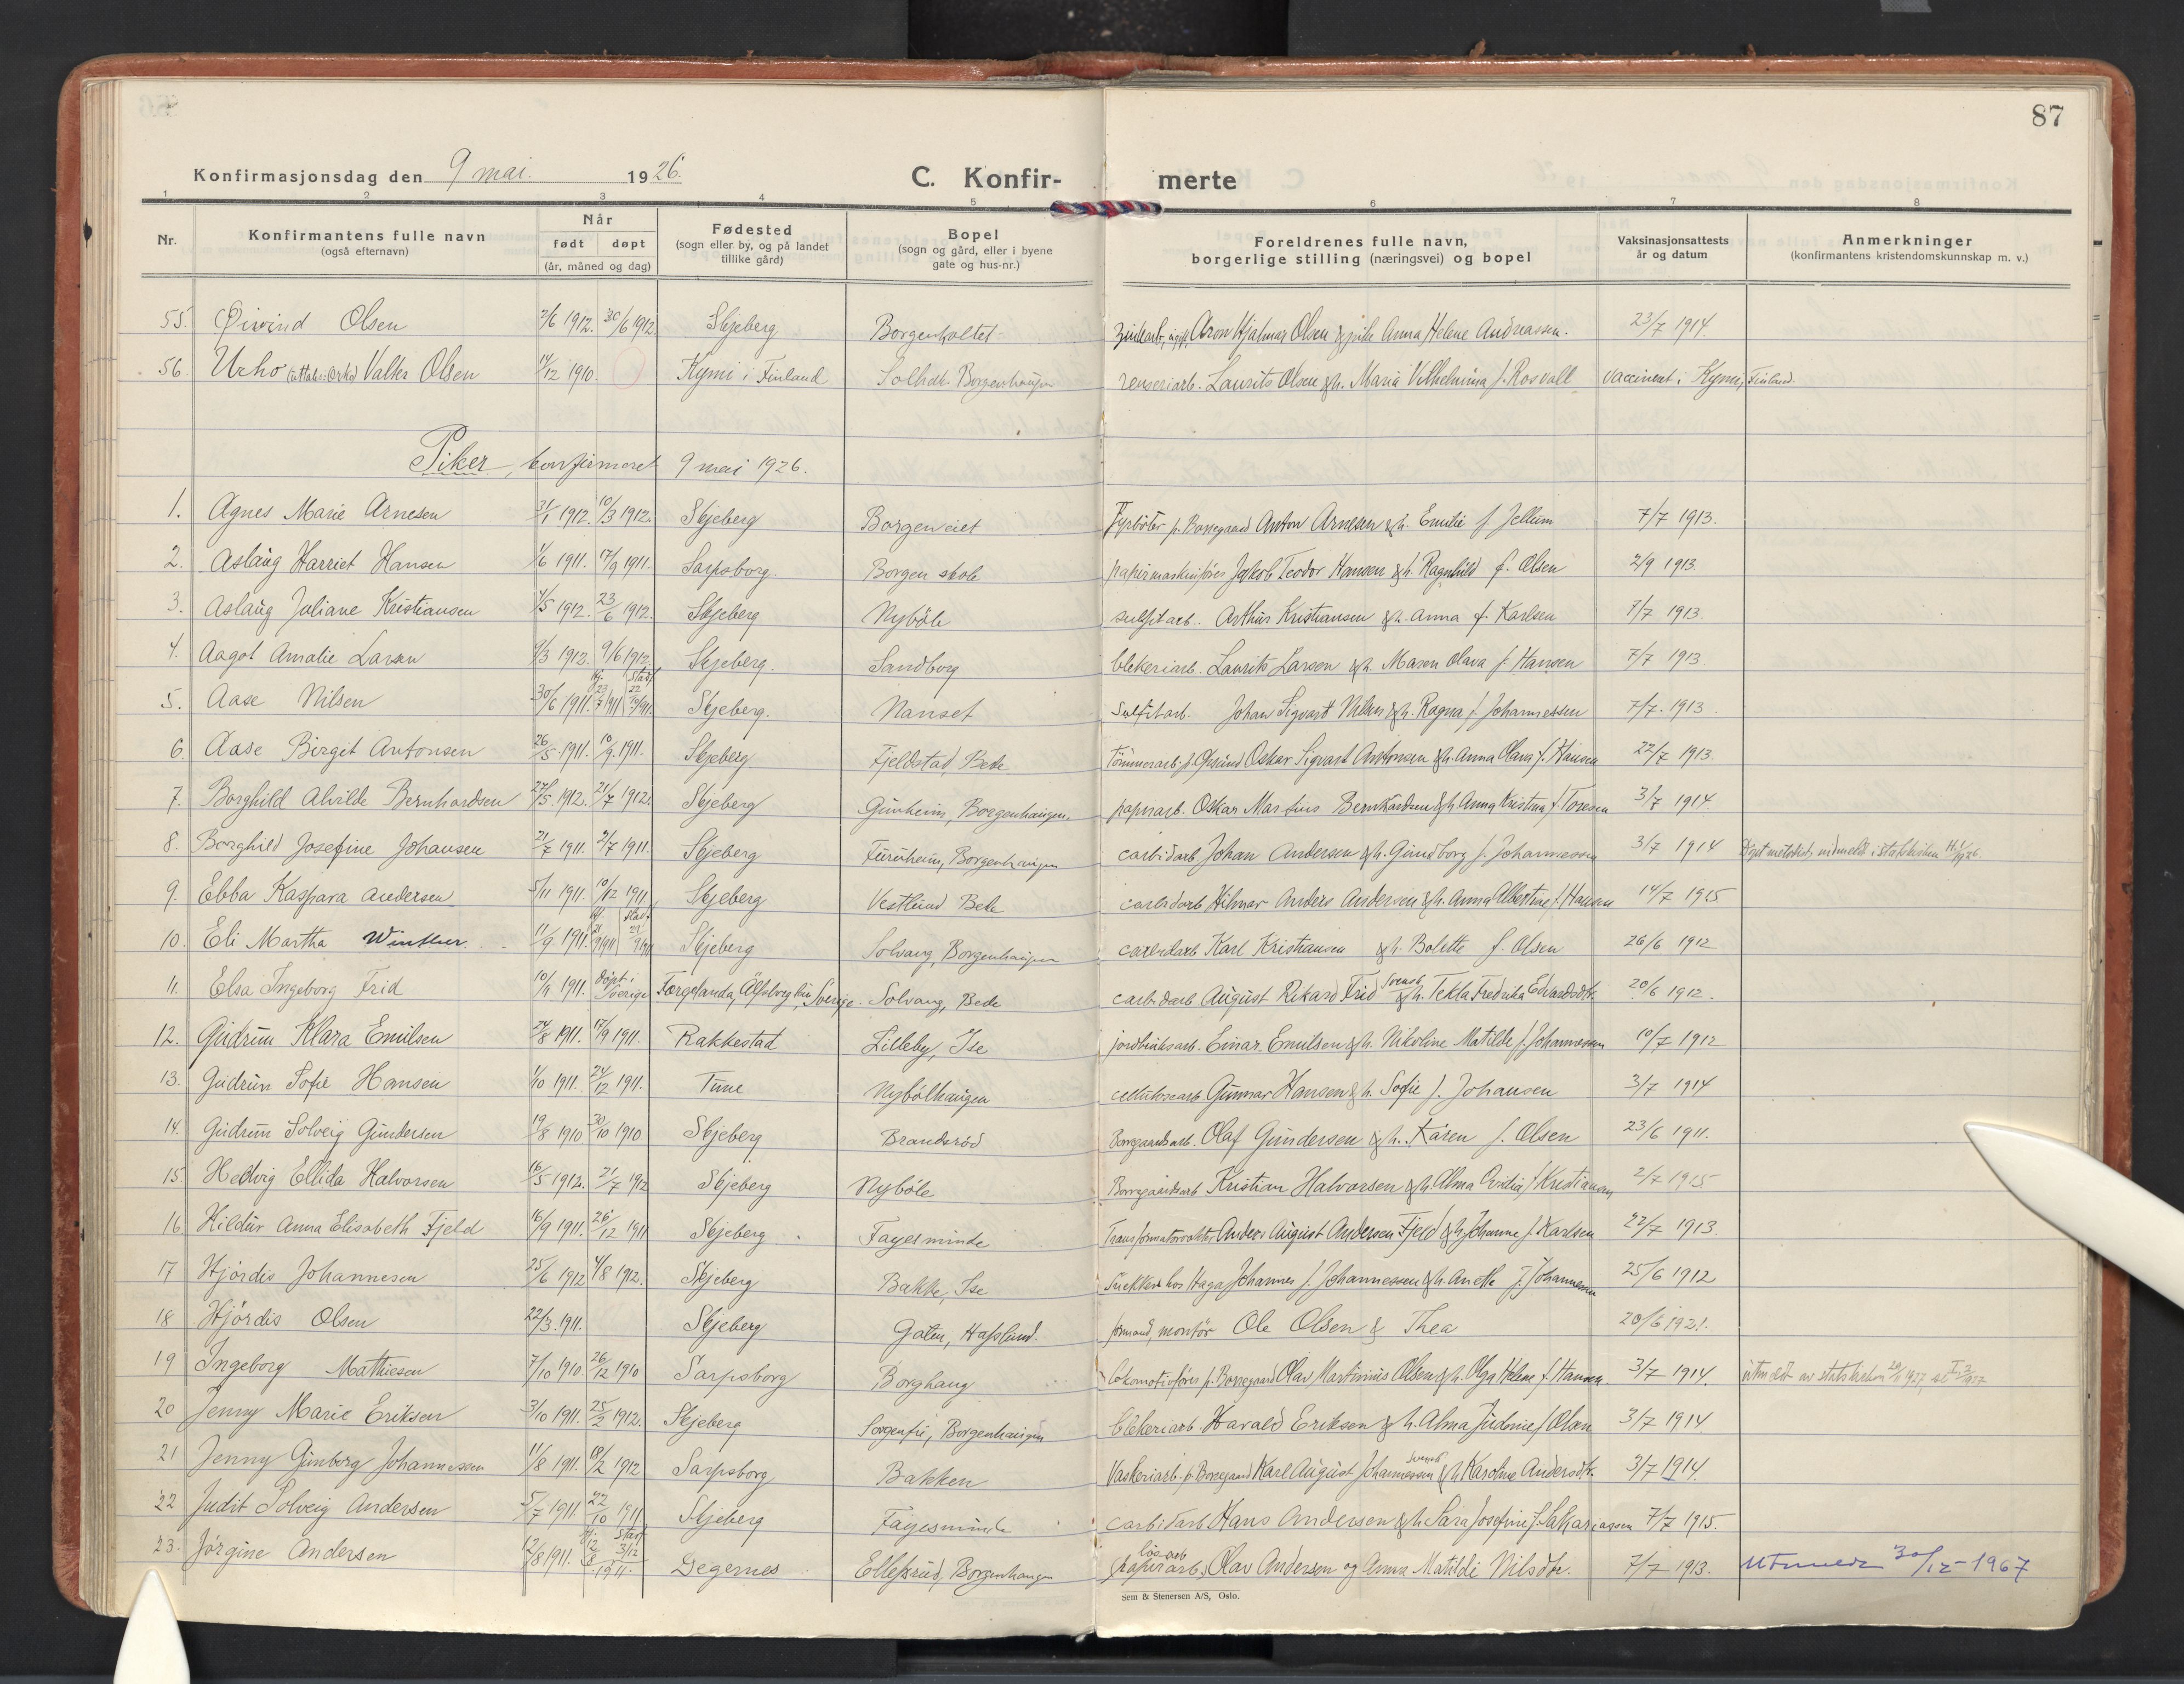 87
Konfirmasjonsdag den 9 mai. 1926. C. Konfir- merte
1 2 3 4 5 6 7 8
Nr. Konfirmantens fulle navn (også efternavn) Når født døpt (år, måned og dag) Fødested (sogn eller by, og på landet tillike gård) Bopel (sogn og gård, eller i byene gate og hus-nr.) Foreldrenes fulle navn, borgerlige stilling (næringsvei) og bopel Vaksinasjonsattests år og datum Anmerkninger (konfirmantens kristendomskunnskap m. v.)
55. Øivind Olsen 2/6 1912. 30/6 1912 Skjeberg Borgenholtet Aron Hjalmar Olsen & pike Anna Helene Andreassen. 23/7 1914.
56. Urho (uttales: Orko) Valter Olsen 14/12 1910. Kymi i Finland Borgenhaugen renseriarb. Laurits Olsen & h. Maria Vilhelmina f. Rosvall vaccineret i Kymi, Finland.
Piker, konfirmeret 9 mai 1926.
1. Agnes Marie Arnesen 31/1 1912. 10/3 1912. Skjeberg Borgeneiet Fyrbøter p. Borregaard Anton Arnesen & h. Emilie f. Jellum 7/7 1913.
2. Aslaug Harriet Hansen 1/6 1911. 17/9 1911. Sarpsborg. Borgen skole papirmaskinfører Jakob Teodor Hansen & h. Ragnhild f. Olsen 2/9 1913
3. Aslaug Juliane Kristiansen 4/5 1912. 23/6 1912. Skjeberg Nybøle sulfitarb. Arthur Kristiansen & h. Anna f. Karlsen 7/7 1913.
4. Aagot Amalie Larsen 9/3 1912. 9/6 1912. Skjeberg. Sandborg blekeriarb. Laurits Larsen & h. Maren Olava f. Hansen 7/7 1913.
5. Aase Nilsen 30/6 1911. hj. 23/7 1911 stadf. 22/10 1911. Skjeberg. Nanset Sulfitarb. Johan Sigvart Nilsen & h. Ragna f. Johannessen 7/7. 1913.
6. Aase Birgit Antonsen 26/5 1911. 10/9. 1911. Skjeberg Fjeldstad, Bede Tømmerarb. Oskar Sigvart Antonsen & h. Anna Olava f. Hansen 22/7 1913.
7. Borghild Alvilde Bernhardsen 27/5. 1912. 21/7 1912. Skjeberg Gunheim, Borgenhaugen. papirarb. Oskar Martius Bernhardsen & h. Anna Kristina f. Toresen 3/7 1914.
8. Borghild Josefine Johansen 21/7 1911. 2/7 1911. Skjeberg Furuheim, Borgenhaugen carbidarb. Johan Andersen & h. Gundborg f. Johannessen 3/7 1914 Døpt metodist, indmeldt i statskirken 1926.
9. Ebba Kaspara Andersen 5/11 1911. 10/12 1911 Skjeberg Vestlund Bede carbidarb Hilmar Anders Andersen & h. Anna Albertine f. Hansen 14/7 1915
10. Eli Martha Winther 11/9 1911. hj. stadf. Skjeberg Solvang, Borgenhaugen carbidarb Karl Kristiansen & h. Bolette f. Olsen 26/6 1912
11. Elsa Ingeborg Frid 10/9 1911. Døpt i Sverige Færgelanda, Älfsborgs län, Sverige. Solvang, Bede carbidarb August Rikard Frid svensk & h. Tekla Fredrika Edvardsdtr. 20/6 1912.
12. Gudrun Klara Emilsen 24/8 1911. 17/9 1911. Rakkestad Lilleby, Ise jordbruksarb. Einar Emilsen & h. Nikoline Matilde f. Johannessen 10/7 1912
13. Gudrun Sofie Hansen 1/10 1911. 24/12 1911. Tune Nybølhaugen cellulosearb. Gunnar Hansen & h. Sofie f. Johansen 3/7 1914
14. Gudrun Solveig Gundersen 19/8 1910 30/10 1910 Skjeberg Brandsrød Borregaardsarb. Olaf Gundersen & h. Karen f. Olsen 23/6 1911.
15. Hedvig Ellida Halvorsen 16/5 1912. 21/7 1912 Skjeberg Nybøle Borregaardsarb Kristian Halvorsen & h. Alma Ovidia f. Kristiansen 2/7 1915
16. Hildur Anna Elisabeth Fjeld 16/9 1911. 26/12 1911 Skjeberg Fagesminde Transformatorvokter Anders August Andersen Fjeld & h. Johanne f. Karlsen 22/7 1913.
17 Hjørdis Johannesen 25/6 1912 4/8 1912. Skjeberg Bakke, Ise snekker hos Haga Johannes f. Johannessen & h. Anette f. Johannesen 25/6 1912
18 Hjørdis Olsen 22/3. 1911. Skjeberg Gaten, Hafslund. formand, montør Ole Olsen & Thea 20/6 1921.
19 Ingeborg Mathiesen 7/10 1910. 26/12 1910 Sarpsborg Borghaug lokomotivfører p. Borregaard Olav Martinius Olsen & h. Olga Helene f. Hansen. 3/7 1914. utmeldt av statskirken 1927,
20 Jenny Marie Eriksen 3/10 1911. 25/2 1912. Skjeberg Sorgenfri, Borgenhaugen blekeriarb. Harald Eriksen & h. Alma Judine f. Olsen 3/7 1914
21 Jenny Gunborg Johannessen 11/8 1911. 18/2 1912 Sarpsborg Bakken Vaskeriarb. p. Borregaard Karl August Johannessen svensk & h. Karoline Andersdtr. 3/7 1914.
22 Judit Solveig Andersen 5/7 1911. 22/10 1911 Skjeberg Fagesminde carbidarb Hans Andersen & h. Sara Josefine f. Sakariassen 7/7 1915.
23. Jørgine Andersen 12/8 1911. hj. stadf. 3/12 1911. Degernes Ellefsrud, Borgenhaugen (papirarb.) løsarb Olav Andersen og Anna Matilde Nilsdtr. 7/7 1913. Utmeldt 30/12-1967
Sem & Stenersen A/S, Oslo.